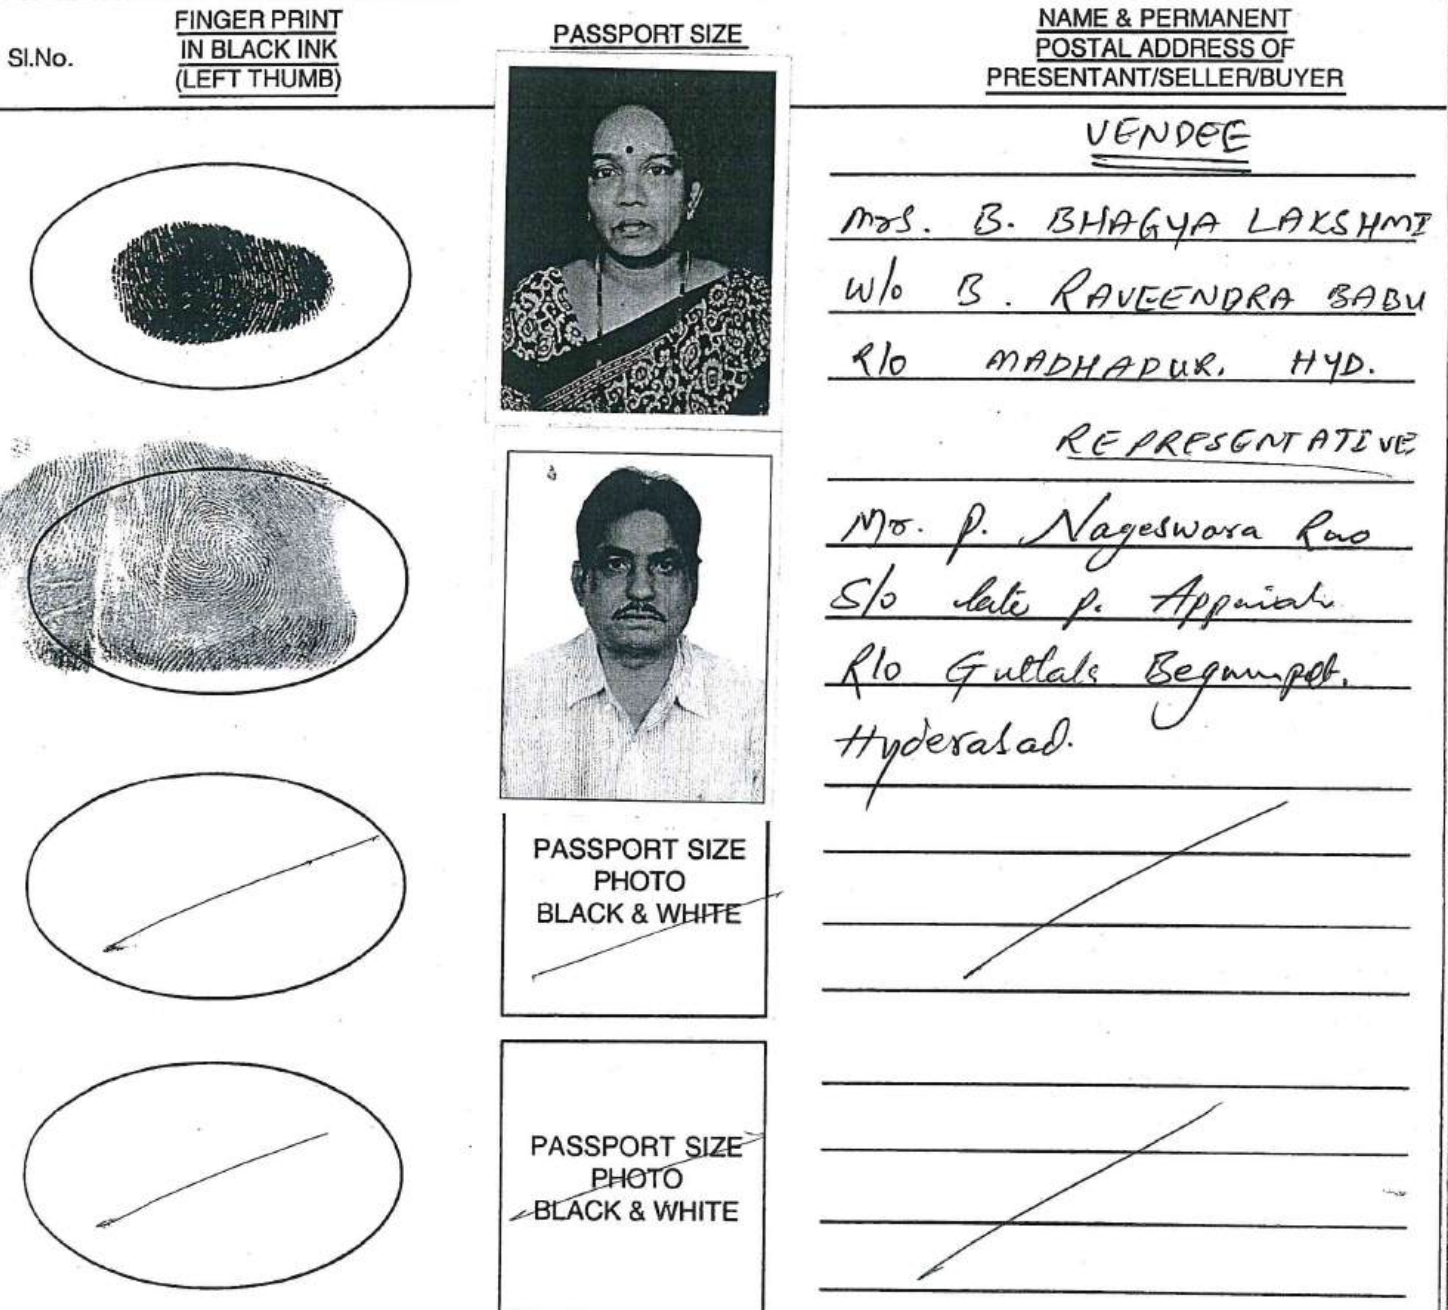 Sl.No.
FINGER PRINT
IN BLACK INK
(LEFT THUMB)
PASSPORT SIZE
NAME & PERMANENT
POSTAL ADDRESS OF
PRESENTANT/SELLER/BUYER
VENDEE
Mrs. B. BHAGYA LAKSHMI
W/o B. RAVEENDRA BABU
R/o MADHAPUR. HYD.
REPRESENTATIVE
Mr. P. Nageswara Rao
S/o late P. Appaiah
R/o Guttala Begumpet.
Hyderabad.
PASSPORT SIZE
PHOTO
BLACK & WHITE
PASSPORT SIZE
PHOTO
BLACK & WHITE